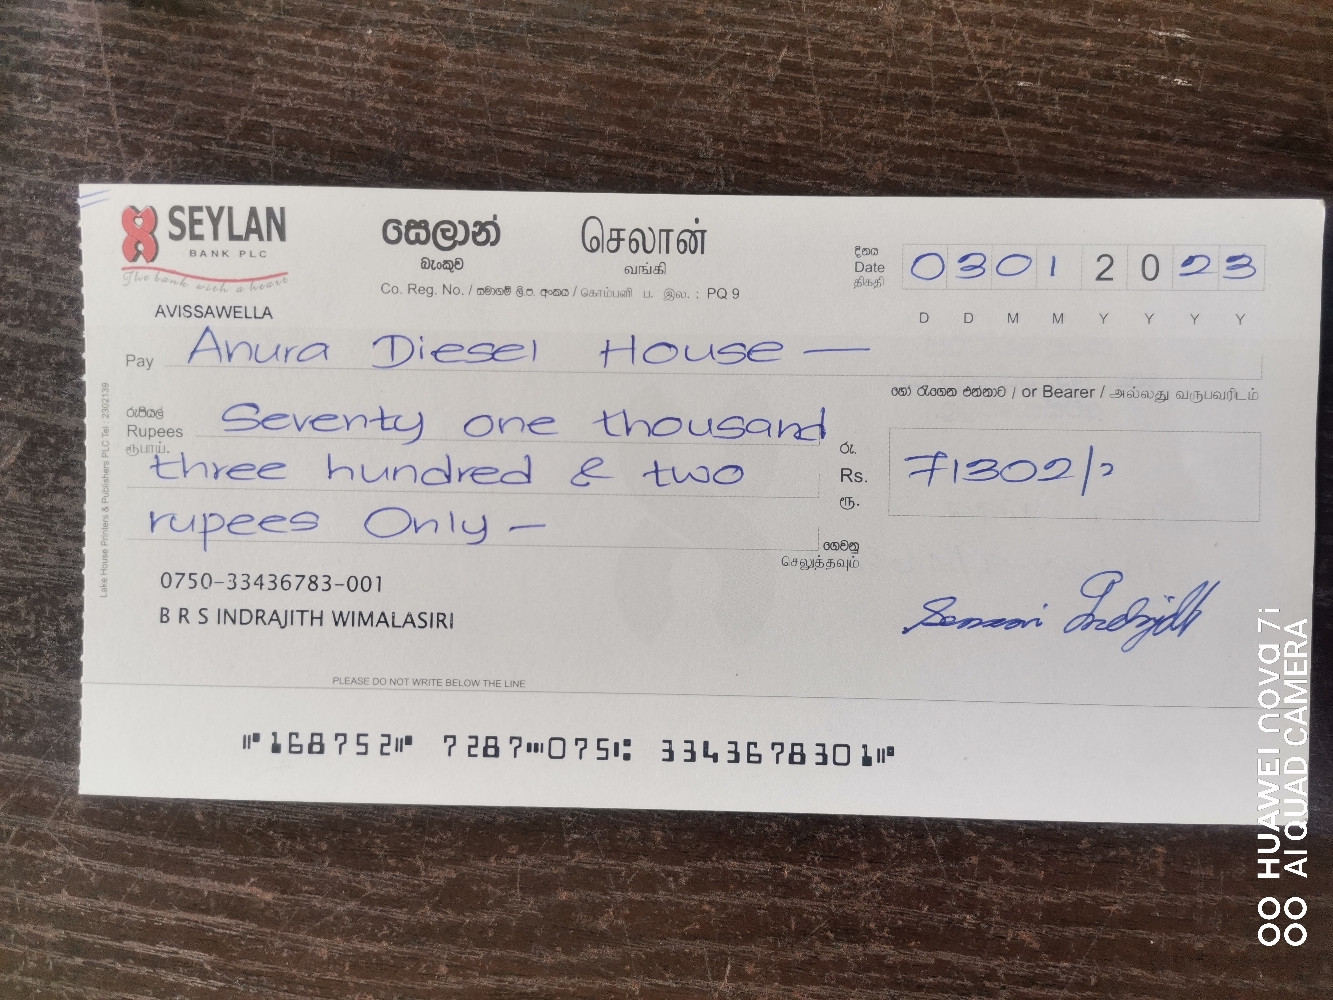 SEYLAN
BANK PLC
The bank with a heart
AVISSAWELLA
සෙලාන්
බැංකුව
செலான்
வங்கி
Co. Reg. No. / සමාගම් ලි.ප. අංකය / கொம்பனி ப. இல. : PQ 9
දිනය
Date
திகதி
0 3 0 1 2 0 2 3
D D M M Y Y Y Y
Pay Anura Diesel House —
හෝ රැගෙන එන්නාට / or Bearer / அல்லது வருபவரிடம்
රුපියල්
Rupees
ரூபாய்.
Seventy one thousand
three hundred & two
rupees Only —
රු.
Rs.
ரூ.
71302/-
ගෙවනු
செலுத்தவும்
0750-33436783-001
B R S INDRAJITH WIMALASIRI
PLEASE DO NOT WRITE BELOW THE LINE
⑈168752⑈ 7287⑉075⑆ 3343678301⑈
Lake House Printers & Publishers PLC Tel : 2302139
HUAWEI nova 7i
AI QUAD CAMERA